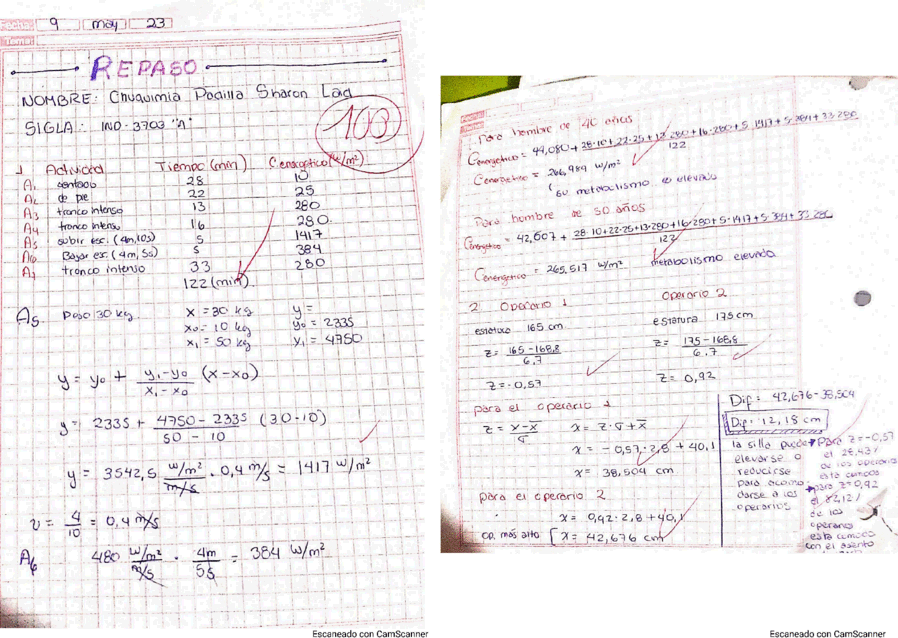 Fecha: 9 may 23
Tema:
REPASO
NOMBRE: Chuquimia Padilla Sharon Laid
SIGLA: IND-3703 "A"
100
1 Actividad Tiempo (min) C energético (w/m²)
A₁ sentado 28 10
A₂ de pie 22 25
A₃ tronco intenso 13 280
A₄ tronco intenso 16 280
A₅ subir esc. (4m, 10s) 5 1417
A₆ Bajar esc. (4m, 5s) 5 384
A₇ tronco intenso 33 280
122 (min)
A₅ Peso 30 kg x = 30 kg y =
x₀ = 10 kg y₀ = 2335
x₁ = 50 kg y₁ = 4750
y = y₀ + (y₁ - y₀)/(x₁ - x₀) (x - x₀)
y = 2335 + (4750 - 2335)/(50 - 10) (30 - 10)
y = 3542,5 (w/m²)/(m/s) · 0,4 m/s = 1417 w/m²
v = 4/10 = 0,4 m/s
A₆ 480 (w/m²)/(m/s) · 4m/5s = 384 w/m²
Escaneado con CamScanner
Para hombre de 40 años
C energetico = 44,080 + (28·10+22·25+13·280+16·280+5·1417+5·384+33·280)/122
C energetico = 266,989 w/m²
su metabolismo es elevado
Para hombre de 50 años
C energetico = 42,607 + (28·10+22·25+13·280+16·280+5·1417+5·384+33·280)/122
C energetico = 265,517 w/m² metabolismo elevado
2 Operario 1 Operario 2
estatura 165 cm estatura 175 cm
z = (165 - 168,8)/6,7 z = (175 - 168,8)/6.7
z = -0,57 z = 0,92
para el operario 1
z = (x - x̄)/σ x = z·σ + x̄
x = -0,57·2,8 + 40,1
x = 38,504 cm
para el operario 2
x = 0,92·2,8 + 40,1
op. más alto x = 42,676 cm
Dif = 42,676 - 38,504
Dif = 12,18 cm
la silla puede
elevarse o
reducirse
para acomo
darse a los
operarios
Para z = -0,57
el 28,43%
de los operarios
está comodo
para z = 0,92
el 82,12%
de los
operarios
esta comodo
con el asento
Escaneado con CamScanner